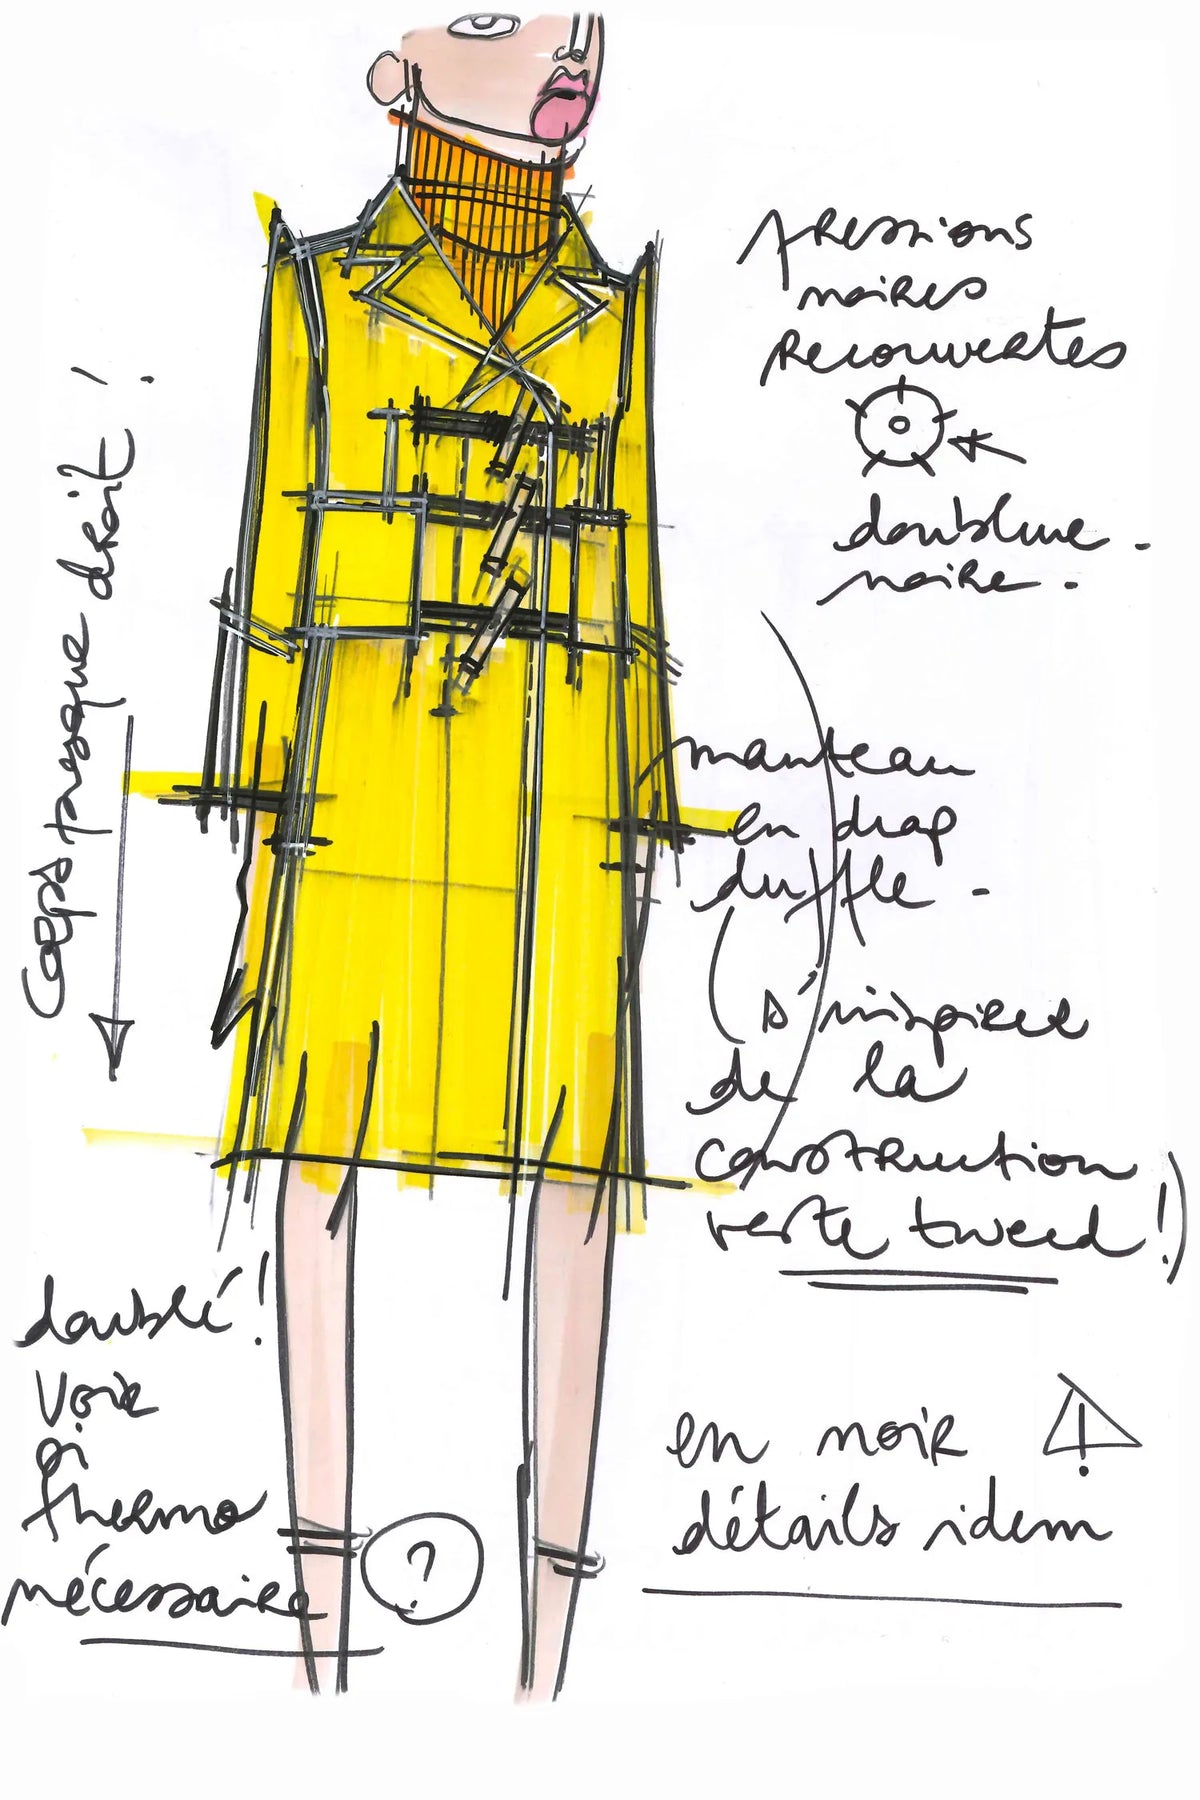 pressions
noires
recouvertes
doublure.
noire.
Corps presque droit !
manteau
en drap
duffle -
( s'inspirer
de la
construction
veste tweed !)
doublé !
Voir
si
thermo
nécessaire ?
en noir !
détails idem